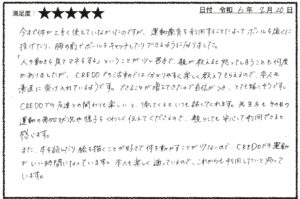 満足度・★★★★★ 日付 令和 6年 2月 20日
今まで体が上手く使えていなかったのですが、運動療育を利用することによってボールを遠くに
投げたり、胸の前でボールをキャッチしたりできるようになりました。
「人の動きを見てマネをする」ということが少し苦手で、親が教えると怒ってしまうことも何度
かありましたが、CREDOでの活動では分かりやすく楽しく教えてもらえるので、本人も
素直に受け入れているようです。できることが増えてきたので自信がつき、とても嬉しそうです。
CREDOでの友達との関わりも楽しいと、帰ってくるといつも話してくれます。先生方もその日の
運動の活動状況や様子もくわしく伝えてくださるので、親としても安心して利用できると
感じます。
また、本を読んだり絵を描くことが好きで体を動かすことが少ないので、CREDOが運動
らしい時間になっています。本人も楽しく通っているので、これからも利用したいと思って
います。